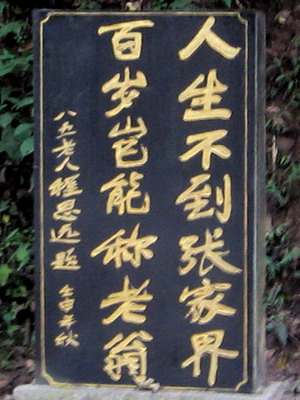 人生不到张家界
百岁岂能称老翁
八五老人程思远题
壬申年秋